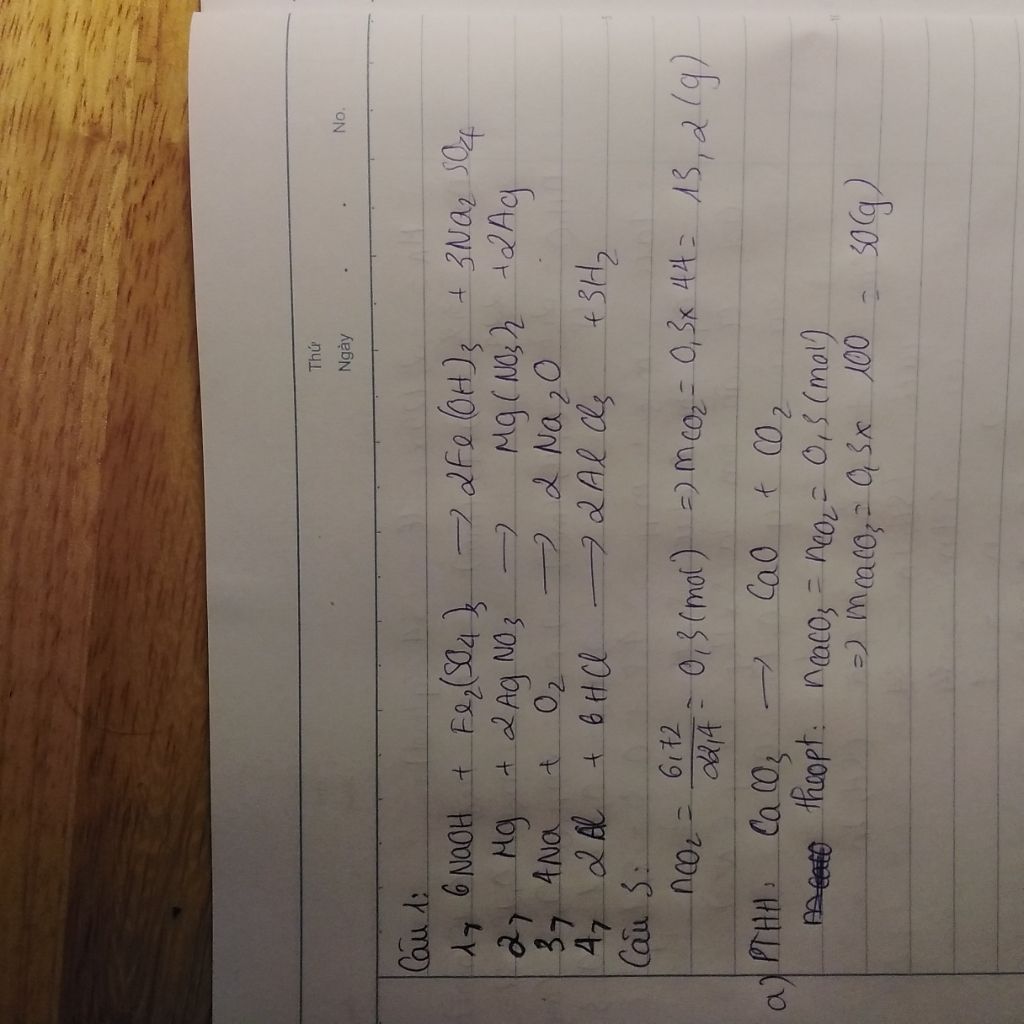 Thứ
Ngày
No.
Câu 1:
1, 6NaOH + Fe₂(SO₄)₃ → 2Fe(OH)₃ + 3Na₂SO₄
2, Mg + 2AgNO₃ → Mg(NO₃)₂ + 2Ag
3, 4Na + O₂ → 2Na₂O
4, 2Al + 6HCl → 2AlCl₃ + 3H₂
Câu 3:
nCO₂ = 6,72/22,4 = 0,3(mol) => mCO₂ = 0,3x44 = 13,2(g)
a) PTHH: CaCO₃ → CaO + CO₂
theo pt: nCaCO₃ = nCO₂ = 0,3(mol)
=> mCaCO₃ = 0,3x 100 = 30(g)